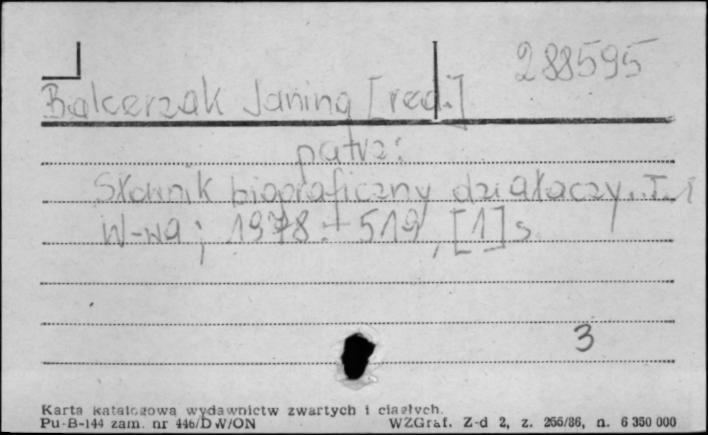 288595
Balcerzak Janina [red.]
patrz:
Słownik biograficzny działaczy. T. 1
W-wa; 1978. 519, [1] s
3
Karta katalogowa wydawnictw zwartych i ciągłych.
Pu-B-144 zam. nr 446/D W/ON
WZGraf. Z-d 2, z. 266/86, n. 6 350 000